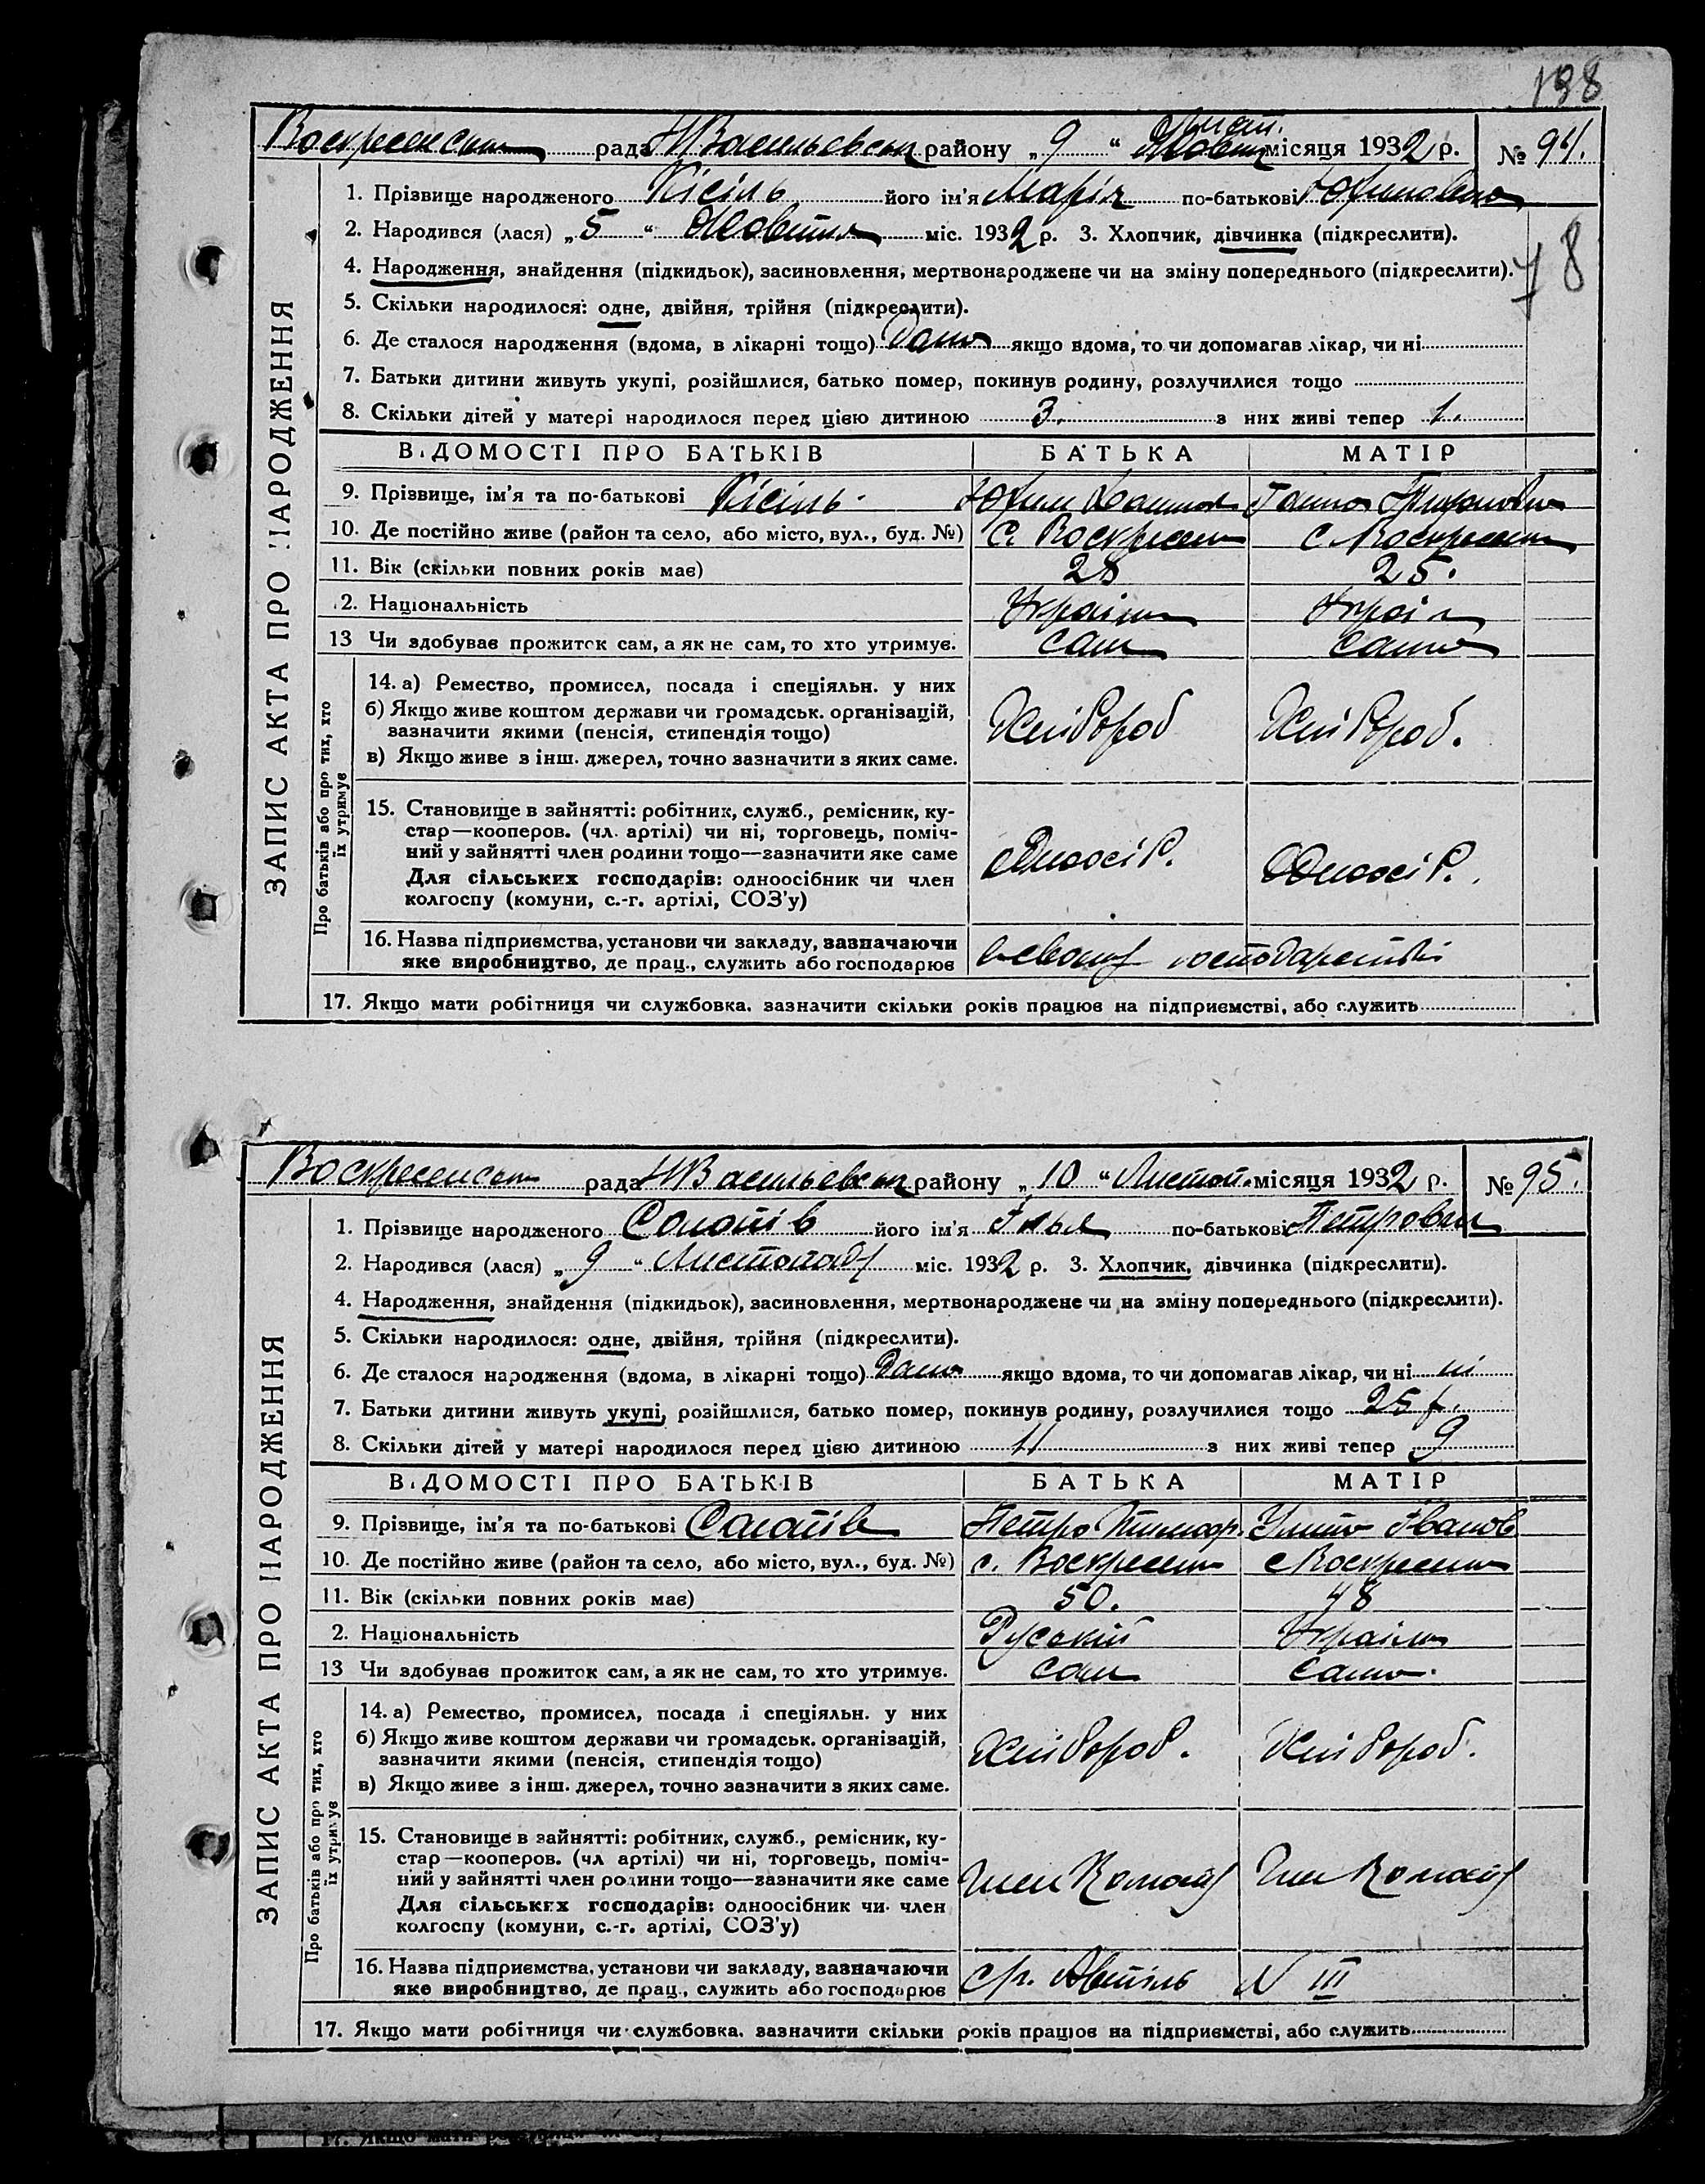 198
Воскресенськ рада НВасильевськ району „9“ Лист. місяця 1932 р. № 94.
1. Прізвище народженого Кісіль його ім'я Марія по-батькові Юхимовна
2. Народився (лася) „5“ Жовтня міс. 1932 р. 3. Хлопчик, дівчинка (підкреслити).
78
4. Народження, знайдення (підкидьок), засиновлення, мертвонароджене чи на зміну попереднього (підкреслити).
5. Скільки народилося: одне, двійня, трійня (підкреслити).
6. Де сталося народження (вдома, в лікарні тощо) Дома якщо вдома, то чи допомагав лікар, чи ні
7. Батьки дитини живуть укупі, розійшлися, батько помер, покинув родину, розлучилися тощо
8. Скільки дітей у матері народилося перед цією дитиною 3. з них живі тепер 1.
ВІДОМОСТІ ПРО БАТЬКІВ БАТЬКА МАТІР
9. Прізвище, ім'я та по-батькові Кісіль Юхим Ганна
10. Де постійно живе (район та село, або місто, вул., буд. №) с. Воскресен с. Воскресен
11. Вік (скільки повних років має) 28 25.
2. Національність Україн Україн
13 Чи здобував прожиток сам, а як не сам, то хто утримує. сам сама
ЗАПИС АКТА ПРО НАРОДЖЕННЯ
Про батьків або про тих, хто
їх утримує
14. а) Ремество, промисел, посада і спеціяльн. у них
б) Якщо живе коштом держави чи громадськ. організацій,
зазначити якими (пенсія, стипендія тощо)
в) Якщо живе з інш. джерел, точно зазначити з яких саме.
Хлібороб Хлібороб.
15. Становище в зайнятті: робітник, служб., ремісник, ку-
стар—кооперов. (чл. артілі) чи ні, торговець, поміч-
ний у зайнятті член родини тощо—зазначити яке саме
Для сільських господарів: одноосібник чи член
колгоспу (комуни, с.-г. артілі, СОЗ'у)
Одноосіб. Одноосіб.
16. Назва підприємства, установи чи закладу, зазначаючи
яке виробництво, де прац., служить або господарює
в своему господарстві
17. Якщо мати робітниця чи службовка, зазначити скільки років працює на підприємстві, або служить
Воскресенськ рада НВасильевськ району „10“ Листоп. місяця 1932 р. № 95.
1. Прізвище народженого його ім'я Ілья по-батькові Петрович
2. Народився (лася) „9“ Листопада міс. 1932 р. 3. Хлопчик, дівчинка (підкреслити).
4. Народження, знайдення (підкидьок), засиновлення, мертвонароджене чи на зміну попереднього (підкреслити).
5. Скільки народилося: одне, двійня, трійня (підкреслити).
6. Де сталося народження (вдома, в лікарні тощо) Дома якщо вдома, то чи допомагав лікар, чи ні ні
7. Батьки дитини живуть укупі, розійшлися, батько помер, покинув родину, розлучилися тощо 25
8. Скільки дітей у матері народилося перед цією дитиною 11 з них живі тепер 9
ВІДОМОСТІ ПРО БАТЬКІВ БАТЬКА МАТІР
9. Прізвище, ім'я та по-батькові Петро Тимоф. Іванов
10. Де постійно живе (район та село, або місто, вул., буд. №) с. Воскресен с Воскресен
11. Вік (скільки повних років має) 50. 48
2. Національність Руський Україн
13 Чи здобував прожиток сам, а як не сам, то хто утримує. сам сама.
ЗАПИС АКТА ПРО НАРОДЖЕННЯ
Про батьків або про тих, хто
їх утримує
14. а) Ремество, промисел, посада і спеціяльн. у них
б) Якщо живе коштом держави чи громадськ. організацій,
зазначити якими (пенсія, стипендія тощо)
в) Якщо живе з інш. джерел, точно зазначити з яких саме.
Хлібороб. Хлібороб.
15. Становище в зайнятті: робітник, служб., ремісник, ку-
стар—кооперов. (чл артілі) чи ні, торговець, поміч-
ний у зайнятті член родини тощо—зазначити яке саме
Для сільських господарів: одноосібник чи член
колгоспу (комуни, с.-г. артілі, СОЗ'у)
член член
16. Назва підприємства, установи чи закладу, зазначаючи
яке виробництво, де прац., служить або господарює
Артіль N III
17. Якщо мати робітниця чи службовка, зазначити скільки років працює на підприємстві, або служить